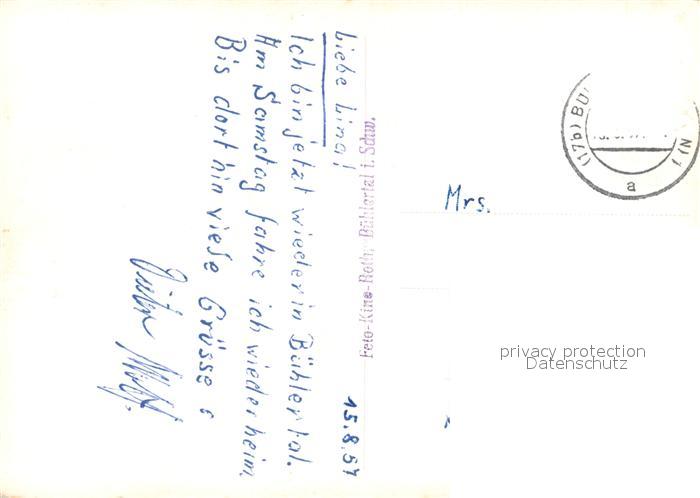 15.8.57
Liebe Lina!
Ich bin jetzt wieder in Bühlertal.
Am Samstag fahre ich wieder heim.
Bis dorthin viele Grüsse
Foto-Kino-Roth, Bühlertal i. Schw.
Mrs.
(17b) BÜ
a
privacy protection
Datenschutz